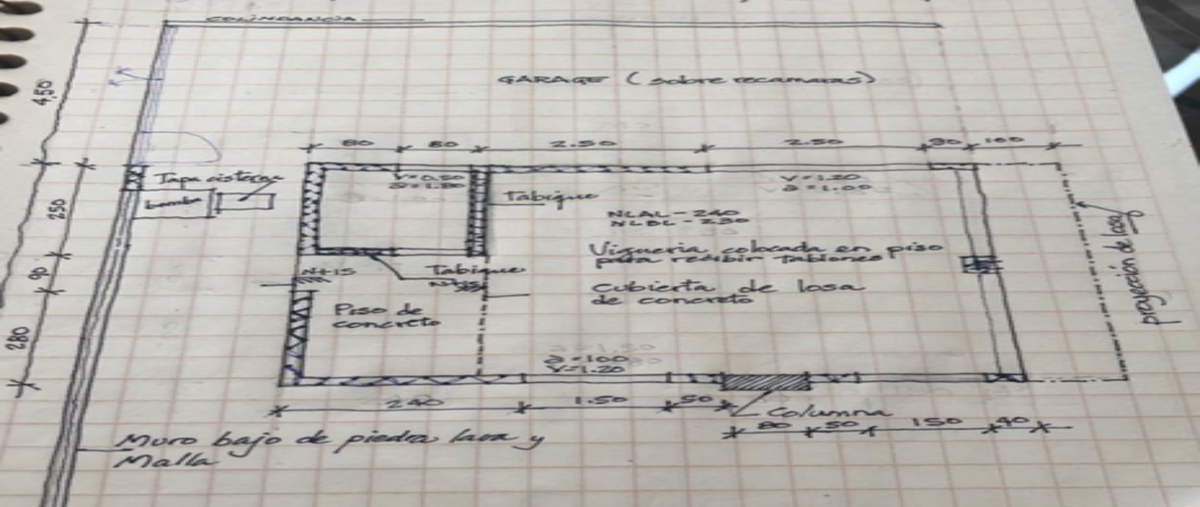 COLINDANCIA
GARAGE (sobre recamaras)
4,50
80 80 2.50 2.50 100
Tapa cisterna
bomba
250
Tabique
V=1.20
a=1.00
NLAL-240
Vigueria colocada en piso
para recibir tablones
Cubierta de losa
de concreto
Tabique
N+15
Piso de
concreto
280
proyección de losa
a=100
V=1.20
240 1.50 50
Columna
80 50 150 40
Muro bajo de piedra lava y
Malla